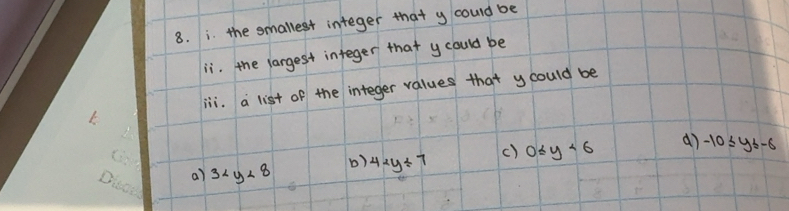 8. i. the smallest integer that y could be
ii. the largest integer that y could be
iii. a list of the integer values that y could be
a) 3 < y < 8 b) 4 < y ≤ 7 c) 0 ≤ y < 6 d) -10 ≤ y ≤ -6